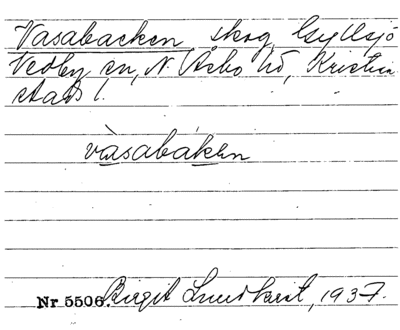 Vasabacken skog, Gyllsjö
Vedby sn, N. Åsbo hd, Kristian
stads l.
vàsabáken
Nr 5506. Birgit Lundkvist, 1937.